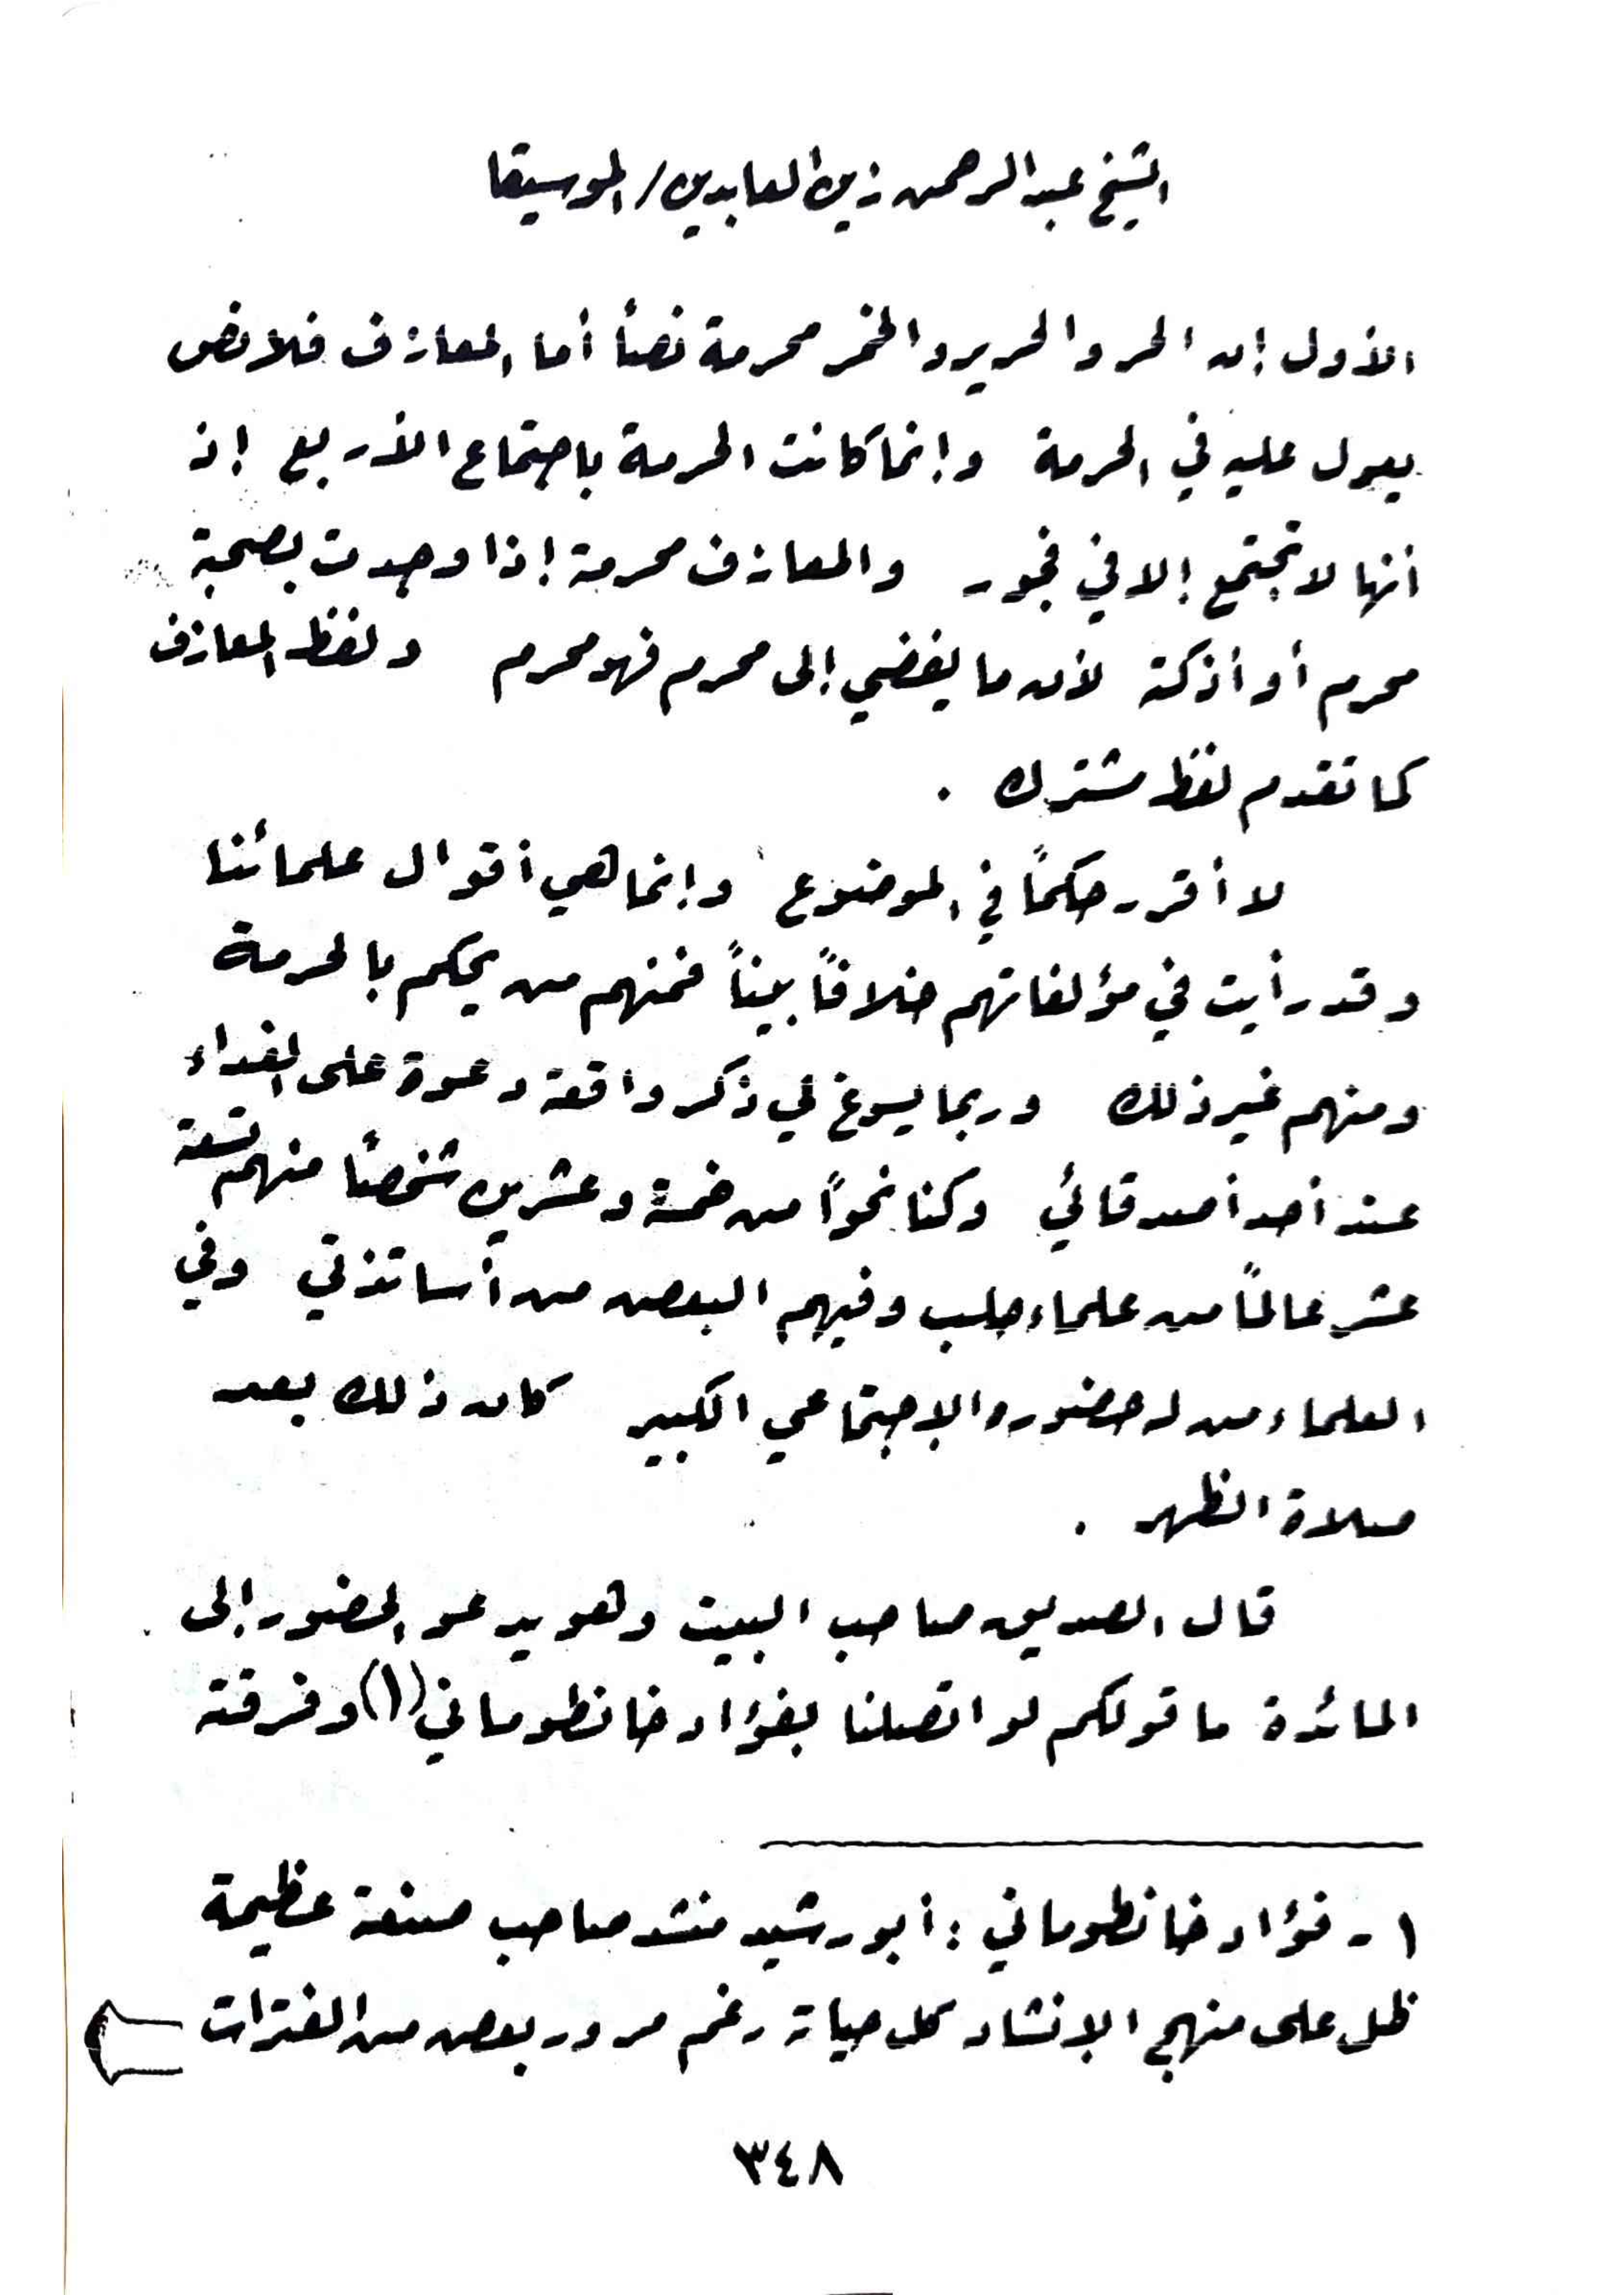 الشيخ عبدالرحمن زين العابدين/الموسيقا
الأول إن الحر والحرير والخمر محرمة نصاً أما المعازف فلا نص
يعول عليه في الحرمة وإنما كانت الحرمة باجتماع الأربع إذ
أنها لا تجتمع إلا في فجور والمعازف محرمة إذا وجدت بصحبة
محرم أو أذكته لأن ما يفضي إلى محرم فهو محرم ولفظ المعازف
كما تقدم لفظ مشترك .
لا أقرر حكماً في الموضوع وإنما هي أقوال علمائنا
وقد رأيت في مؤلفاتهم خلافاً بيناً فمنهم من يحكم بالحرمة
ومنهم غير ذلك وربما يسوغ لي ذكر واقعة دعوة على الغداء
عند أحد أصدقائي وكنا نحواً من خمسة وعشرين شخصاً منهم تسعة
عشر عالماً من علماء حلب وفيهم البعض من أساتذتي وفي
العلماء من له حضوره الاجتماعي الكبير كان ذلك بعد
صلاة الظهر .
قال الصديق صاحب البيت وهو يدعو الحضور إلى
المائدة ما قولكم لو اتصلنا بفؤاد خانطوماني (١) وفرقته
١- فؤاد خانطوماني : أبو رشيد منشد صاحب صنعة عظيمة
ظل على منهج الإنشاد كل حياته رغم مرور بعض من الفترات
٣٤٨